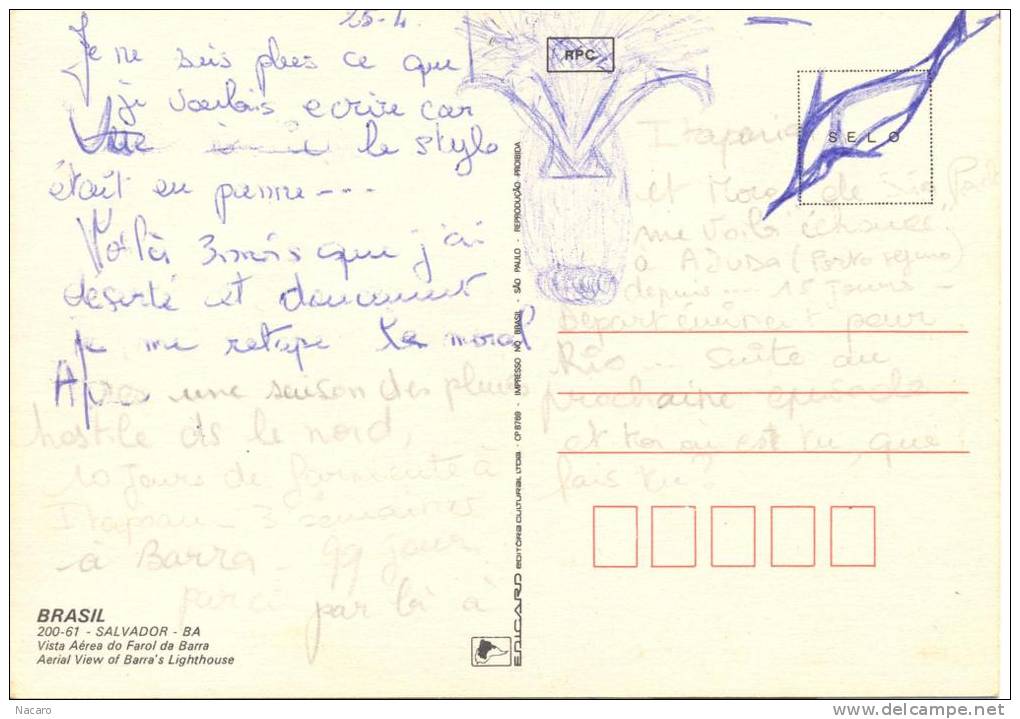 25-4.
Je ne sais plus ce que
je voulais ecrire car
le stylo
était en panne ---
Voilà 3 mois que j'ai
deserté et doucement
je me retape le moral
Apres une saison des pluies
hostile ds le nord,
10 jours de farniente à
3 semaines
à Barra - qq jours
par ci par là à
Itaparica
et de São Paulo
me voilà "échouée"
à AJUDA (Porto seguro)
depuis --- 15 jours -
Départ pour
Rio --- Suite au
prochaine episode
et toi où es tu, que
fais tu?
RPC
SELO
EDICARD EDITÔRA CULTURAL LTDA - CP 8769 - IMPRESSO NO BRASIL - SÃO PAULO - REPRODUÇÃO PROIBIDA
BRASIL
200-61 - SALVADOR - BA
Vista Aérea do Farol da Barra
Aerial View of Barra's Lighthouse
Nacaro
www.delcampe.net